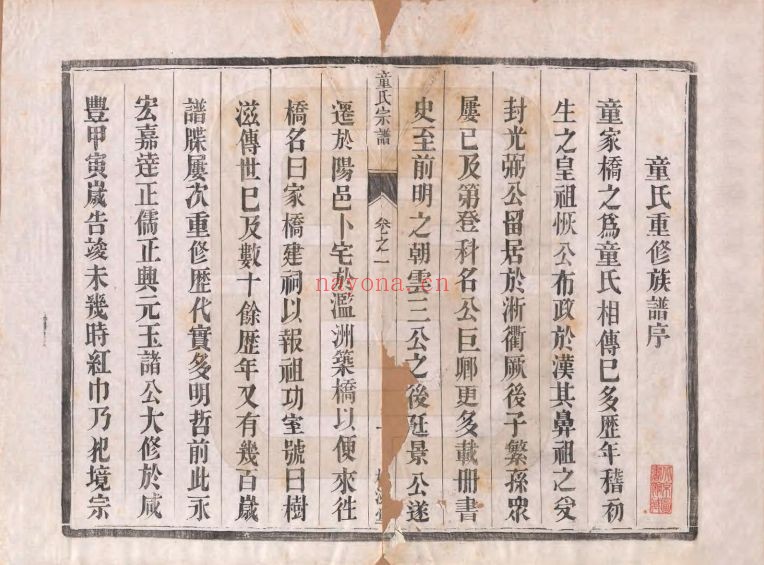 童氏重修族譜序
童家橋之爲童氏相傳已多歷年稽初
生之皇祖恢公布政於漢其鼻祖之受
封光弼公留居於淅衢厥後子繁孫眾
屢已及第登科名公巨卿更多載册書
史至前明之朝雲三公之後廷景公遂
童氏宗譜
卷之一
一
遷於陽邑卜宅於濫洲築橋以便來徃
橋名曰家橋建祠以報祖功室號曰樹
滋傳世已及數十餘歷年又有幾百歲
譜牒屢次重修歷代實多明哲前此永
宏嘉達正儒正興元玉諸公大修於咸
豐甲寅歲告竣未幾時紅巾乃犯境宗
nayona.cn